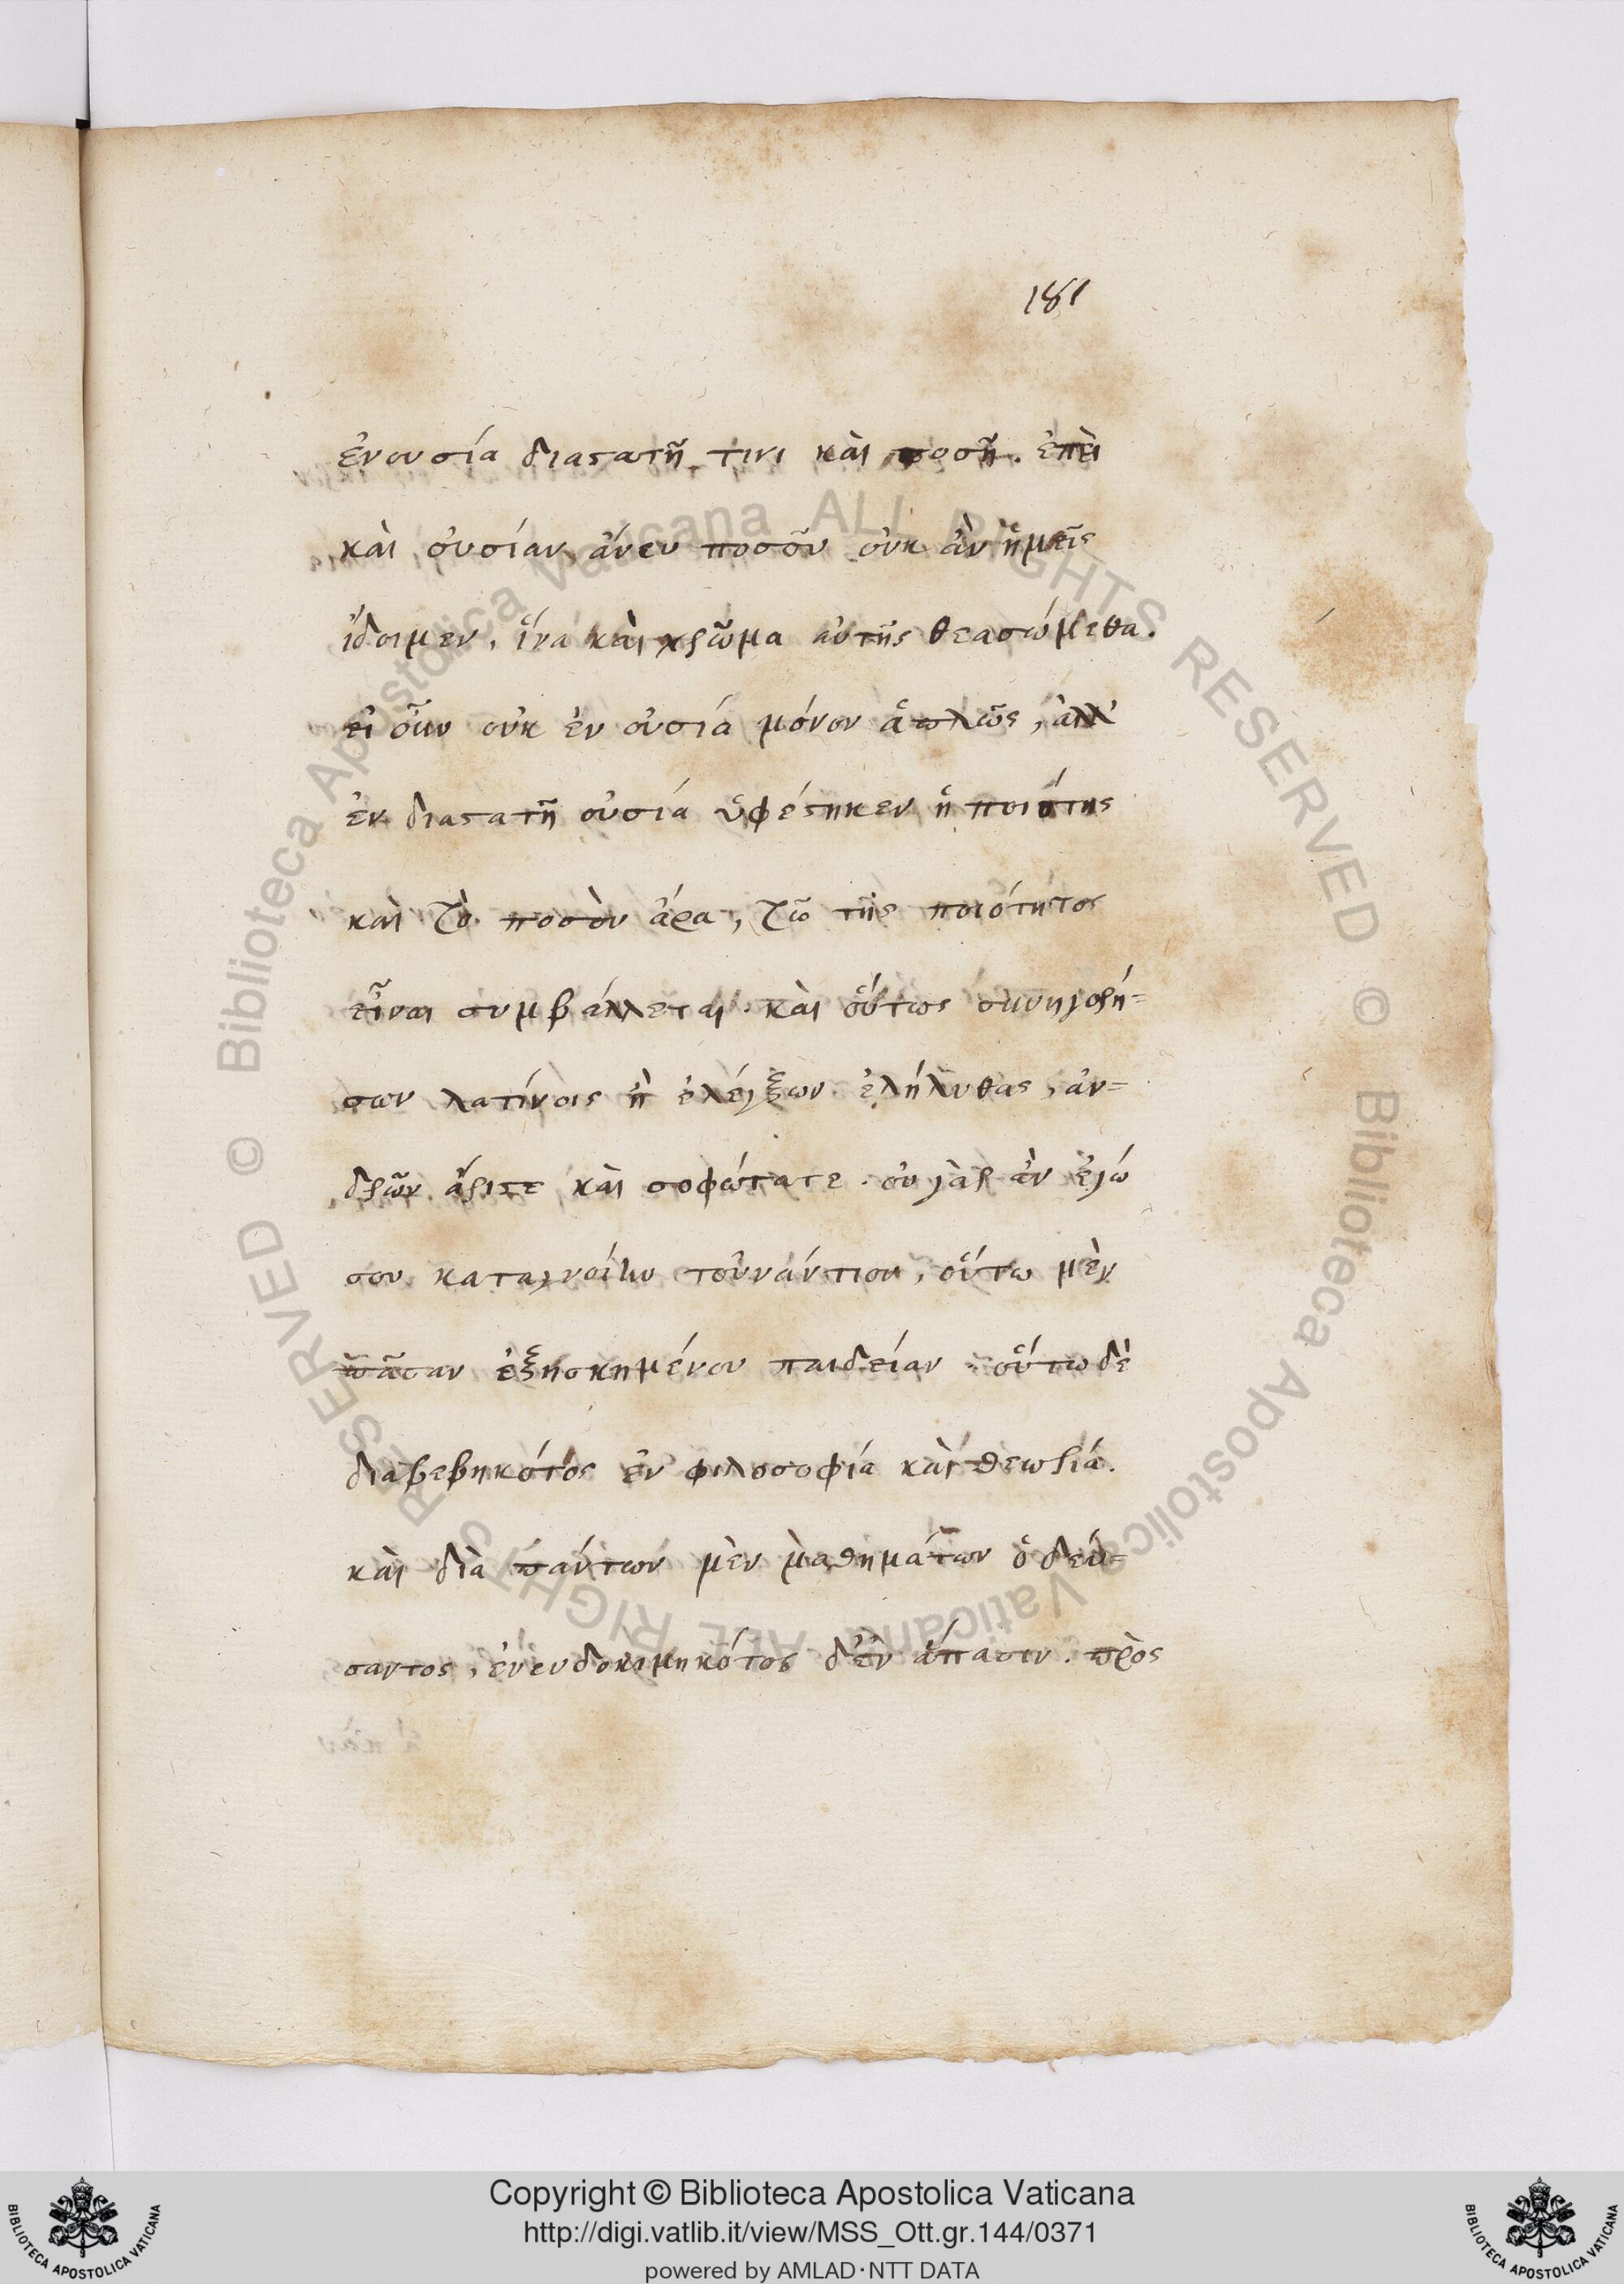 181
ἐν οὐσία διαστατῆ τινι καὶ ποσῆ. ἐπεὶ
καὶ οὐσίαν ἄνευ ποσοῦ οὐκ ἂν ἡμεῖς
ἴδοιμεν, ἵνα καὶ χρῶμα αὐτῆς θεασώμεθα.
εἰ οὖν οὐκ ἐν οὐσία μόνον ἁπλῶς, ἀλλ'
ἐν διαστατῆ οὐσία ὑφέστηκεν ἡ ποιότης
καὶ τὸ ποσὸν ἄρα, τῶ τῆς ποιότητος
εἶναι συμβάλλεται. καὶ οὕτως συνηγορή=
σων λατίνοις ἢ ἐλέγξων ἐλήλυθας, ἀν=
δρῶν ἄριστε καὶ σοφώτατε. οὐ γὰρ ἂν ἐγώ
σου καταγνοίην τοὐναντίον, οὕτω μὲν
πᾶσαν ἐξησκημένου παιδείαν. οὕτω δὲ
διαβεβηκότος ἐν φιλοσοφία καὶ θεωρία.
καὶ διὰ πάντων μὲν μαθημάτων ὁδεύ=
σαντος, ἐνευδοκιμηκότος δ' ἐν ἅπασιν. πρὸς
Copyright © Biblioteca Apostolica Vaticana
http://digi.vatlib.it/view/MSS_Ott.gr.144/0371
powered by AMLAD·NTT DATA
BIBLIOTECA APOSTOLICA VATICANA
BIBLIOTECA APOSTOLICA VATICANA
© Biblioteca Apostolica Vaticana ALL RIGHTS RESERVED
© Biblioteca Apostolica Vaticana ALL RIGHTS RESERVED